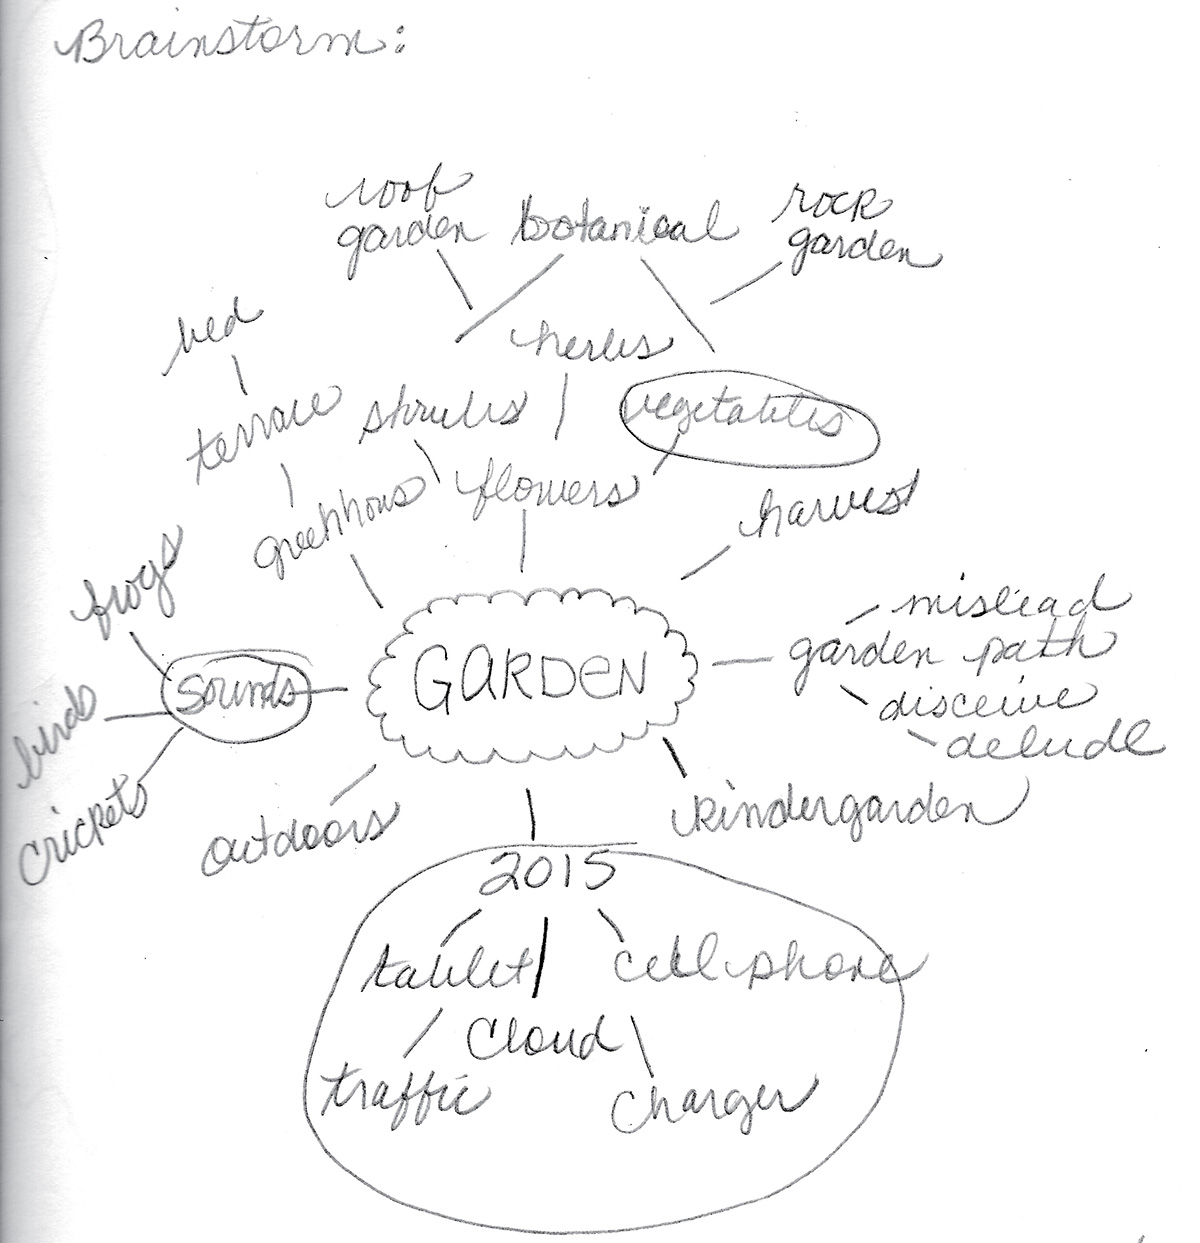 Brainstorm:
roof
garden
botanical
rock
garden
bed
herbs
terrace
shrubs
vegetables
greenhous
flowers
harvest
frogs
mislead
GARDEN
garden path
sounds
disceive
birds
delude
crickets
outdoors
kindergarden
2015
tablet
cell phone
Cloud
traffic
Charger